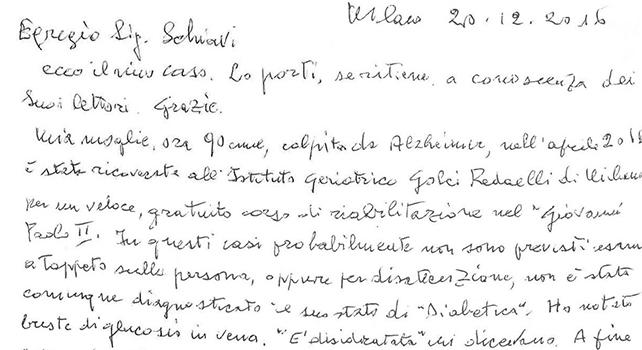 Milano 20.12.2016
Egregio Sig. Schiavi
ecco il mio caso. Lo porti, se ritiene, a conoscenza dei
Suoi lettori. Grazie.
Mia moglie, ora 90enne, colpita da Alzheimer, nell'aprile 201
è stata ricoverata all'Istituto Geriatrico Golgi Redaelli di Milano
per un veloce, gratuito corso di riabilitazione nel "Giovanni
Paolo II". In questi casi probabilmente non sono previsti esami
a tappeto sulla persona, oppure per disattenzione, non è stato
comunque diagnosticato il suo stato di "Diabetica". Ho notato
buste di glucosio in vena. "E' disidratata" mi dicevano. A fine